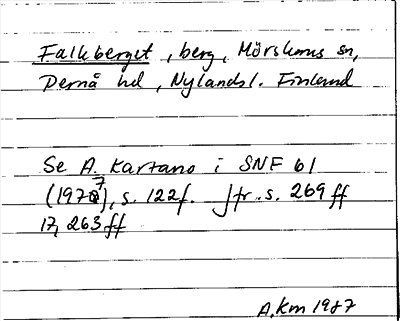 Falkberget, berg, Mörskoms sn,
Pernå hd, Nylandsl. Finland
Se A. Kartano i SNF 61
(1977), s. 122f. Jfr. s. 269 ff
17, 263 ff
A. Km 1987